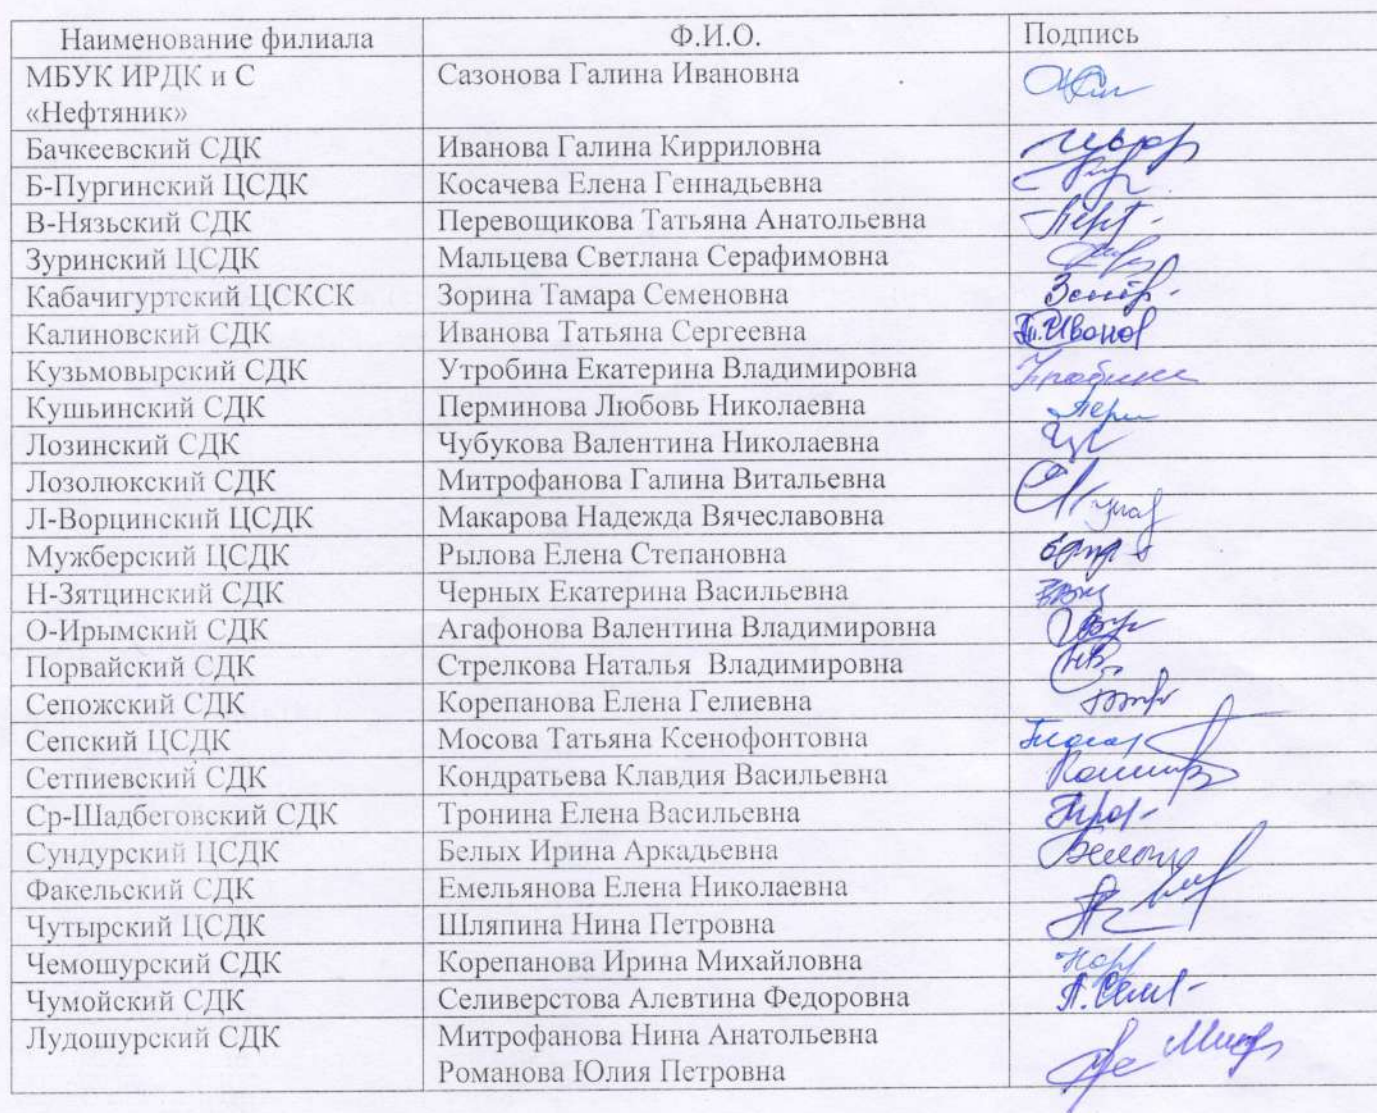 Наименование филиала Ф.И.О. Подпись
МБУК ИРДК и С Сазонова Галина Ивановна
«Нефтяник»
Бачкеевский СДК Иванова Галина Кирриловна
Б-Пургинский ЦСДК Косачева Елена Геннадьевна
В-Нязьский СДК Перевощикова Татьяна Анатольевна
Зуринский ЦСДК Мальцева Светлана Серафимовна
Кабачигуртский ЦСКСК Зорина Тамара Семеновна
Калиновский СДК Иванова Татьяна Сергеевна
Кузьмовырский СДК Утробина Екатерина Владимировна
Кушьинский СДК Перминова Любовь Николаевна
Лозинский СДК Чубукова Валентина Николаевна
Лозолюкский СДК Митрофанова Галина Витальевна
Л-Ворцинский ЦСДК Макарова Надежда Вячеславовна
Мужберский ЦСДК Рылова Елена Степановна
Н-Зятцинский СДК Черных Екатерина Васильевна
О-Ирымский СДК Агафонова Валентина Владимировна
Порвайский СДК Стрелкова Наталья Владимировна
Сепожский СДК Корепанова Елена Гелиевна
Сепский ЦСДК Мосова Татьяна Ксенофонтовна
Сетпиевский СДК Кондратьева Клавдия Васильевна
Ср-Шадбеговский СДК Тронина Елена Васильевна
Сундурский ЦСДК Белых Ирина Аркадьевна
Факельский СДК Емельянова Елена Николаевна
Чутырский ЦСДК Шляпина Нина Петровна
Чемошурский СДК Корепанова Ирина Михайловна
Чумойский СДК Селиверстова Алевтина Федоровна
Лудошурский СДК Митрофанова Нина Анатольевна
Романова Юлия Петровна